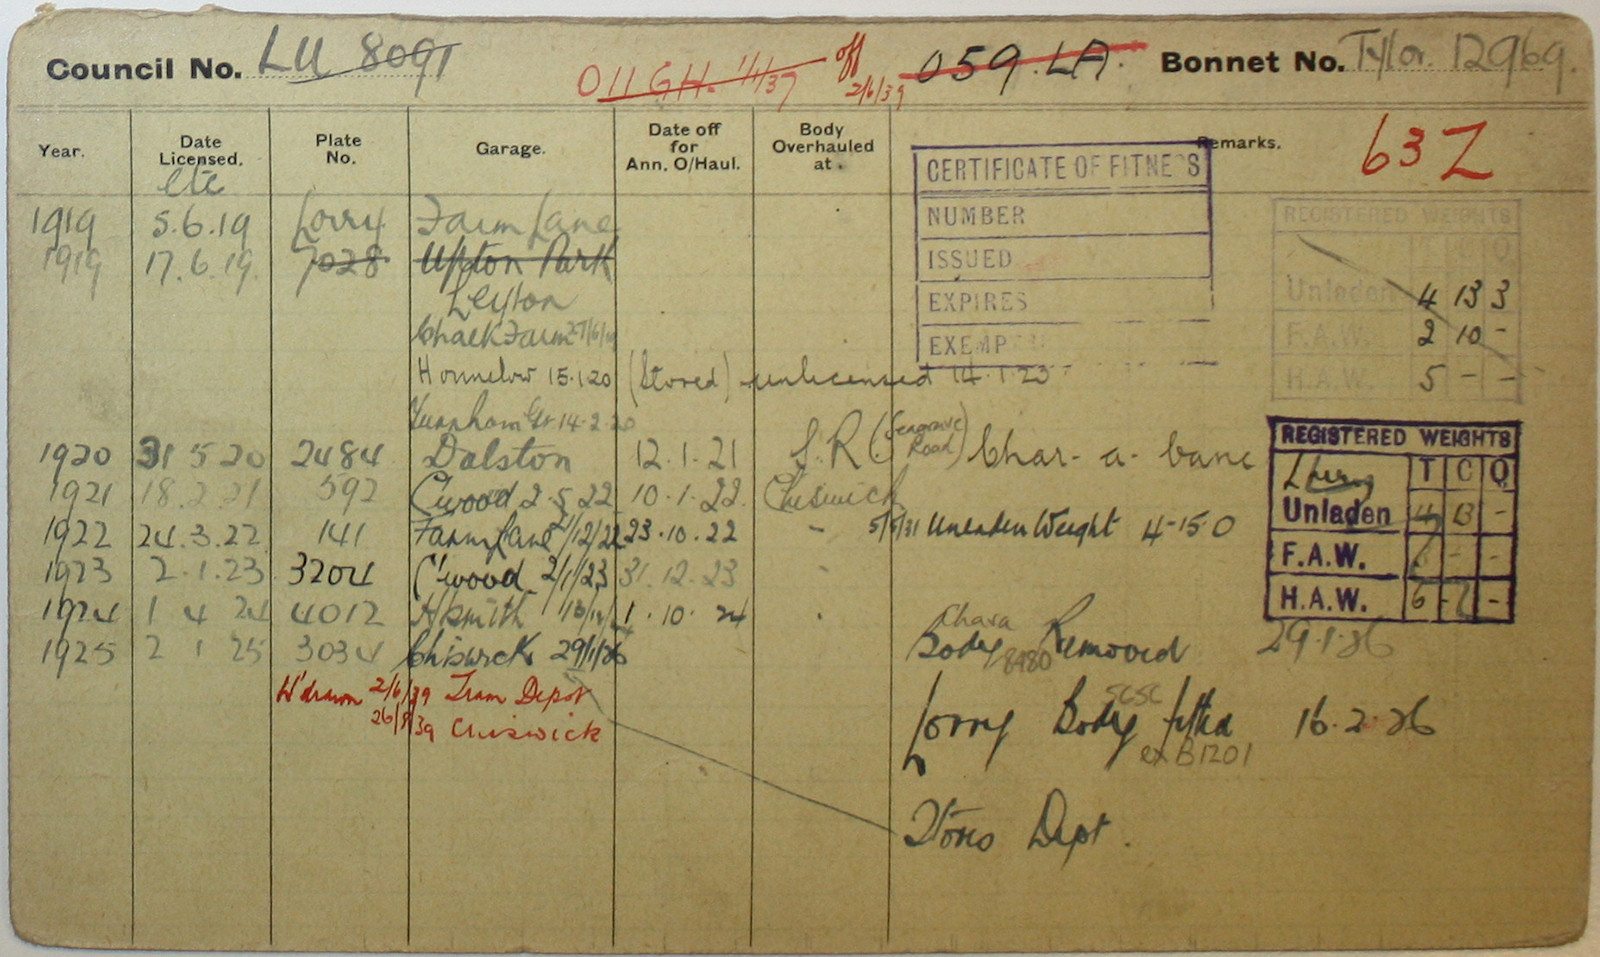 Council No. LU 8091 011 GH. 1/1/37 off 2/6/39 059.LA. Bonnet No. Tylor. 12969.
Year. Date Licensed. etc Plate No. Garage. Date off for Ann. O/Haul. Body Overhauled at. Remarks. 63Z
CERTIFICATE OF FITNESS
NUMBER
ISSUED
EXPIRES
EXEMP
REGISTERED WEIGHTS
T C Q
Unladen 4 13 3
F.A.W. 2 10 -
H.A.W. 5 - -
1919 5.6.19 Lorry Farm Lane
1919 17.6.19. 7028 Upton Park
Leyton
Chalk Farm 27/6/19
Hounslow 15.1.20 (Stored) unlicensed 14.1.23
Turnham Gr. 14.2.20
1920 31 5 20 2484 Dalston 12.1.21 S.R. (Seagrave Road) Char-a-banc
1921 18.2.21 592 C'wood 2.5.22 10.1.22. Chiswick
1922 24.3.22 141 Farm Lane 21/12/22 23.10.22 - 5/5/31 Unladen Weight 4-15-0
1923 2.1.23 3204 C'wood 2/1/23 31.12.23 -
1924 1 4 24 4012 H'smith 1.10.24 .
1925 2 1 25 3034 Chiswick 29/1/26
REGISTERED WEIGHTS
Lorry T C Q
Unladen 4 13 -
F.A.W. - -
H.A.W. 6 - -
Chara Body 8480 Removed 29.1.26
W'drawn 2/6/39 Tram Depot
26/8/39 Chiswick
Lorry Body SCSC fitted 16.2.26
ex B1201
Stores Dept.